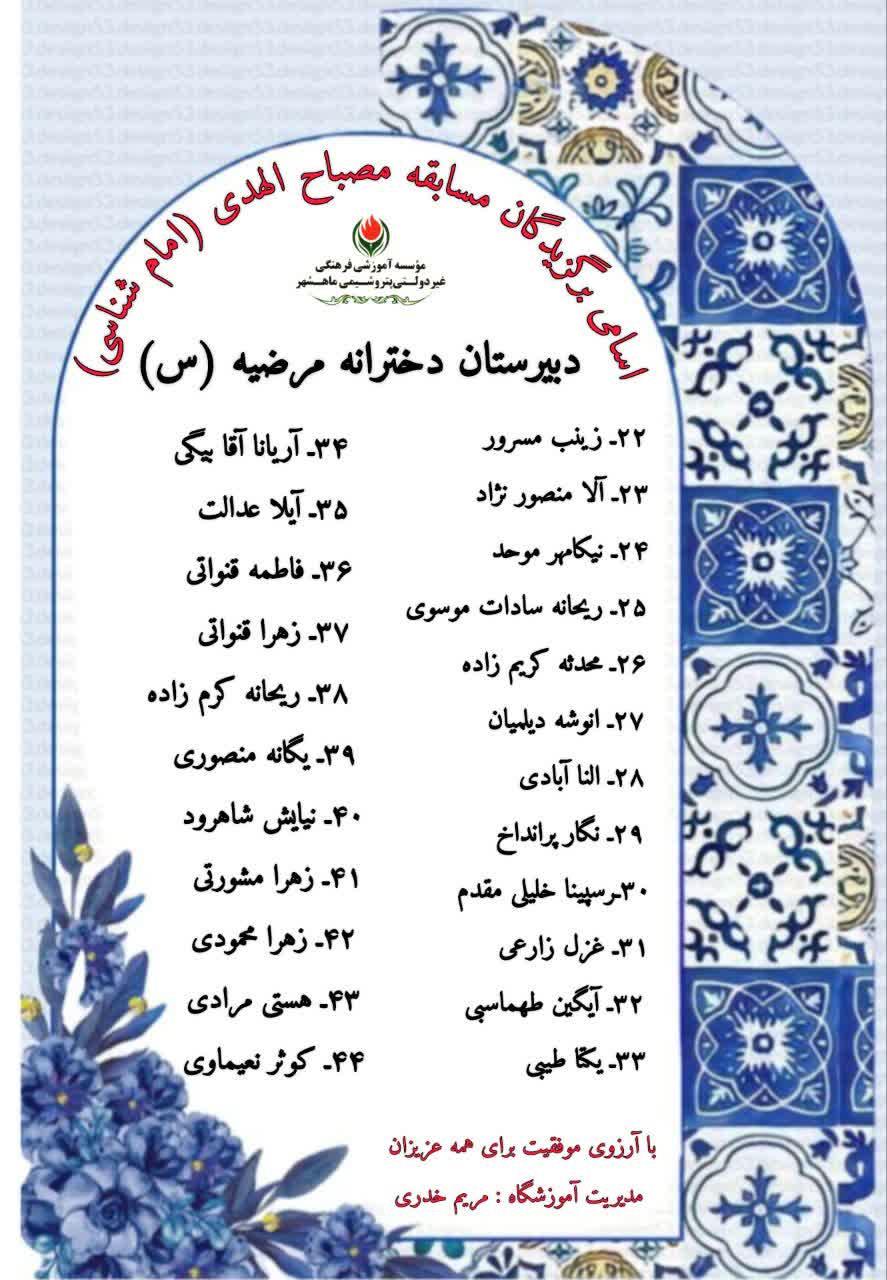 اسامی برگزیدگان مسابقه مصباح الهدی (امام شناسی)
مؤسسه آموزشی فرهنگی
غیردولتی پتروشیمی ماهشهر
دبیرستان دخترانه مرضیه (س)
۲۲ـ زینب مسرور
۲۳ـ آلا منصور نژاد
۲۴ـ نیکامهر موحد
۲۵ـ ریحانه سادات موسوی
۲۶ـ محدثه کریم زاده
۲۷ـ انوشه دیلمیان
۲۸ـ النا آبادی
۲۹ـ نگار پرانداخ
۳۰ـرسپینا خلیلی مقدم
۳۱ـ غزل زارعی
۳۲ـ آیگین طهماسبی
۳۳ـ یکتا طیبی
۳۴ـ آریانا آقا بیگی
۳۵ـ آیلا عدالت
۳۶ـ فاطمه قنواتی
۳۷ـ زهرا قنواتی
۳۸ـ ریحانه کرم زاده
۳۹ـ یگانه منصوری
۴۰ـ نیایش شاهرود
۴۱ـ زهرا مشورتی
۴۲ـ زهرا محمودی
۴۳ـ هستی مرادی
۴۴ـ کوثر نعیماوی
با آرزوی موفقیت برای همه عزیزان
مدیریت آموزشگاه : مریم خدری